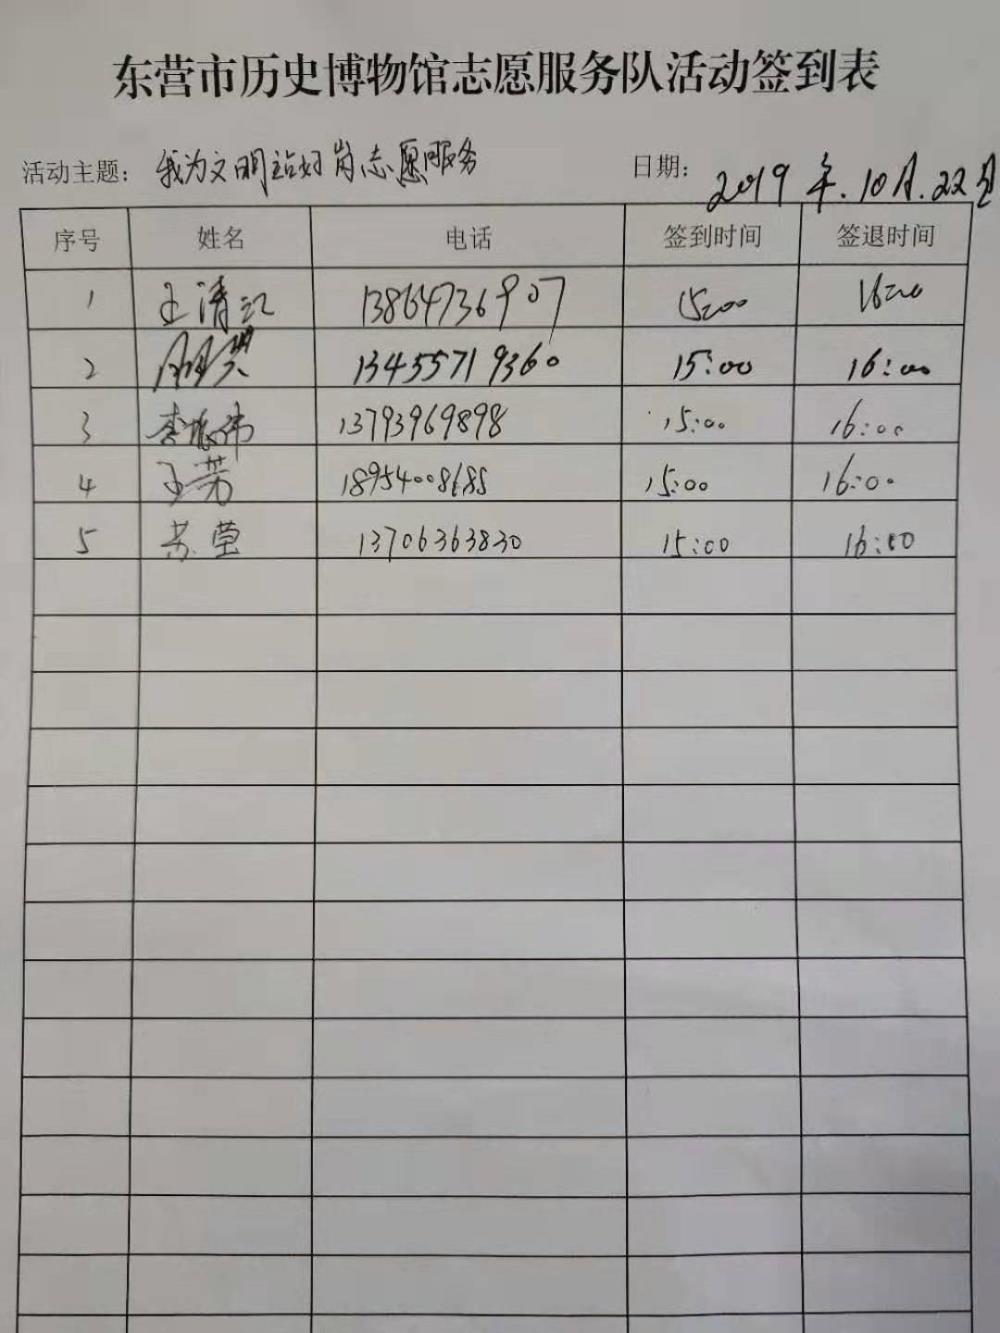 东营市历史博物馆志愿服务队活动签到表
活动主题: 我为文明站好岗志愿服务 日期: 2019年.10月.22日
序号 姓名 电话 签到时间 签退时间
1 王清 13864736907 15:00 16:00
2 13455719360 15:00 16:00
3 李振伟 13793969898 15:00 16:00
4 王芳 18954008685 15:00 16:00
5 苏莹 13706363830 15:00 16:00